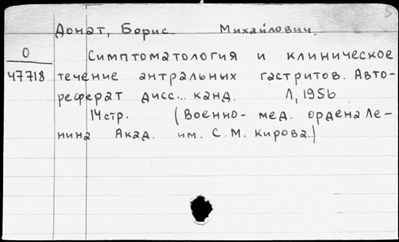 Донат, Борис Михайлович.
О Симптоматология и клиническое
47718 течение антральных гастритов. Авто-
реферат дисс... канд. Л, 1956
14 стр. (Военно-мед. ордена Ле-
нина Акад. им. С.М. Кирова.)